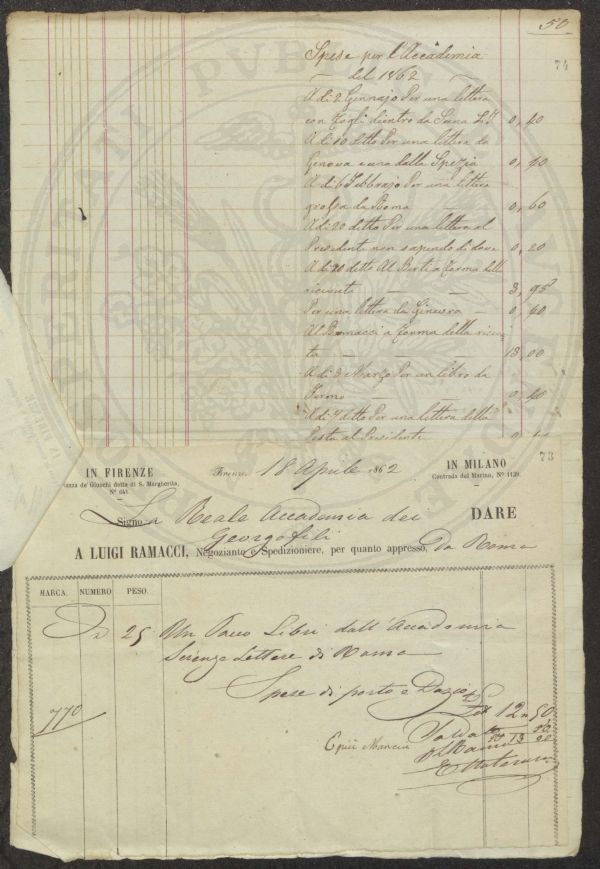 50
74
Spese per l'Accademia
del 1862
A di 2 Gennajo Per una lettera
con fogli dientro da Siena
0,40
A di 10 detto Per una lettera da
Genova e una dalla Spezia
0,40
A di 6 Febbrajo Per una lettera
grossa da Roma
0,60
A di 20 detto Per una lettera al
Presidente non sapendo di dove
0,20
A di 20 detto Al Berti a forma dell
ricevute
3,95
Per una lettera da Ginevra
0,60
Al Ramacci a forma della ricevu
ta
13,00
A di 3 Marzo Per un libro da
Fermo
0,40
A di 7 detto Per una lettera della
Posta al Presidente
73
IN FIRENZE
Piazza de' Giuochi detta di S. Margherita,
N° 641.
Firenze 18 Aprile 1862
IN MILANO
Contrada del Marino, N° 1139.
Signo La Reale Accademia dei
Georgofili
DARE
A LUIGI RAMACCI, Negoziante e Spedizioniere, per quanto appresso, Da Roma
MARCA. NUMERO PESO.
25 Un Pacco Libri dall'Accademia
Scienze Lettere di Roma
Spese di porto e Dazio
12 50
770
E più Mancia
50
13 00